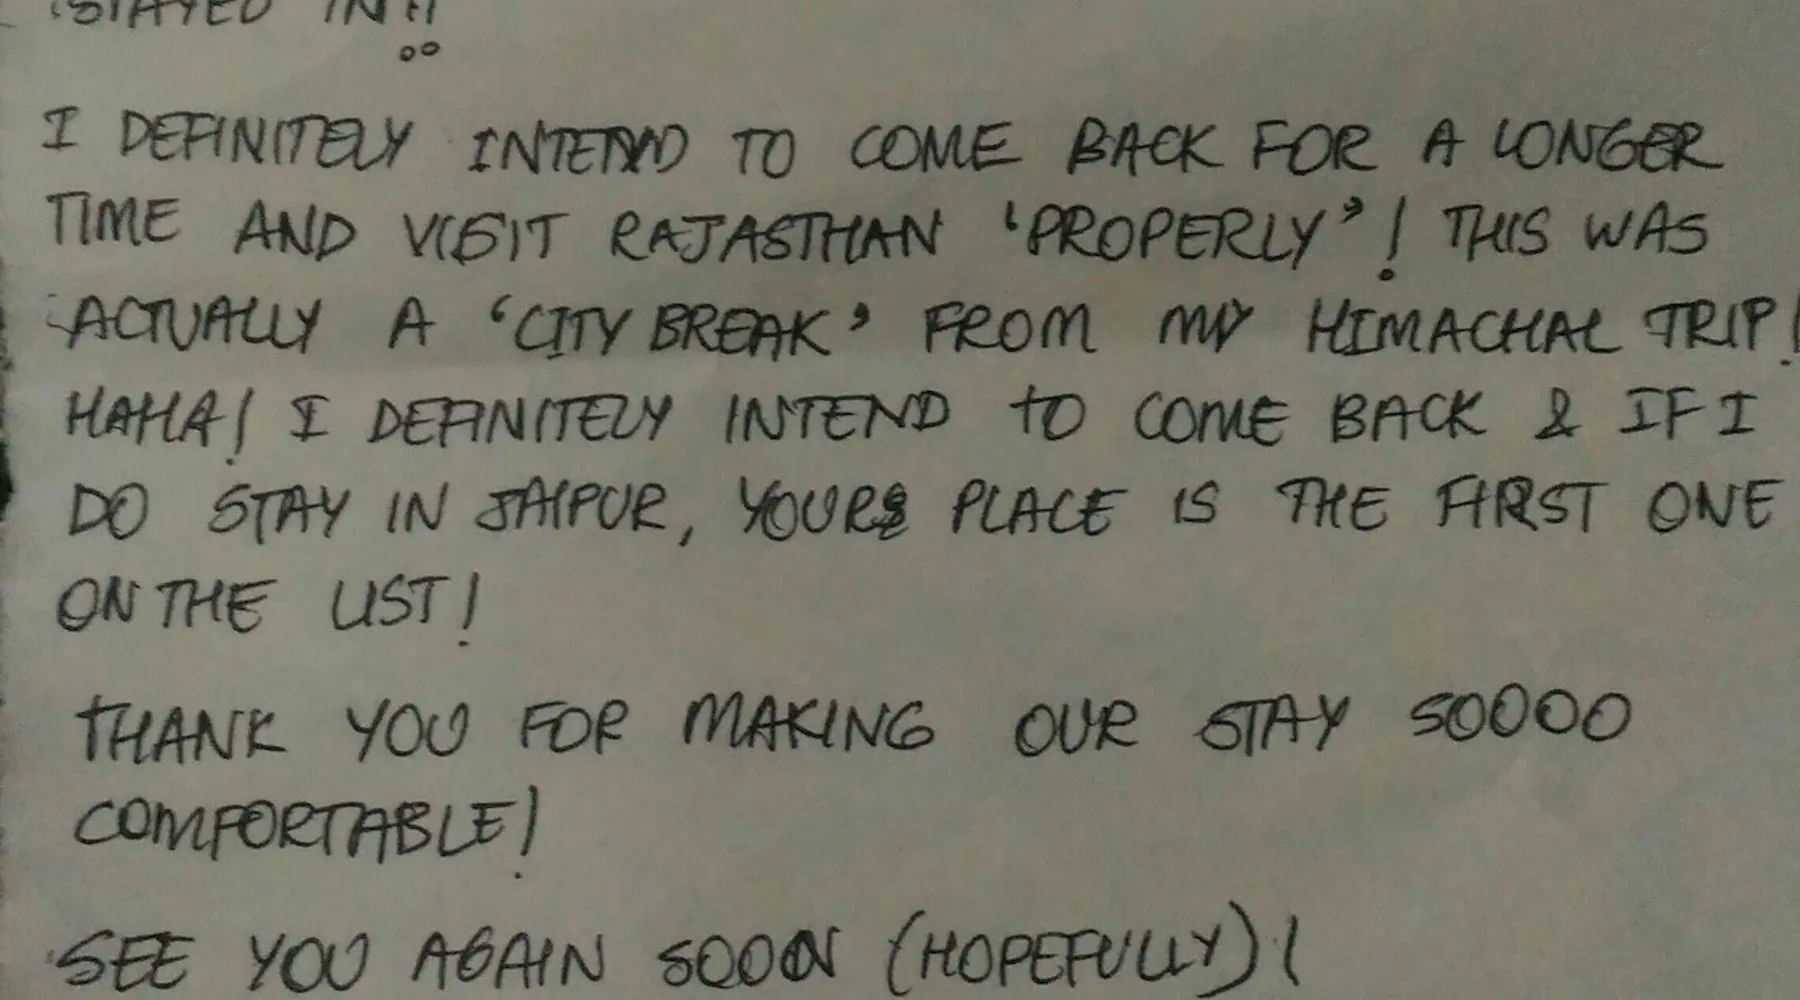 STAYED IN!!
I DEFINITELY INTEND TO COME BACK FOR A LONGER
TIME AND VISIT RAJASTHAN 'PROPERLY'! THIS WAS
ACTUALLY A 'CITY BREAK' FROM MY HIMACHAL TRIP!
HAHA! I DEFINITELY INTEND TO COME BACK & IF I
DO STAY IN JAIPUR, YOURS PLACE IS THE FIRST ONE
ON THE LIST!
THANK YOU FOR MAKING OUR STAY SOOOO
COMFORTABLE!
SEE YOU AGAIN SOON (HOPEFULLY)!